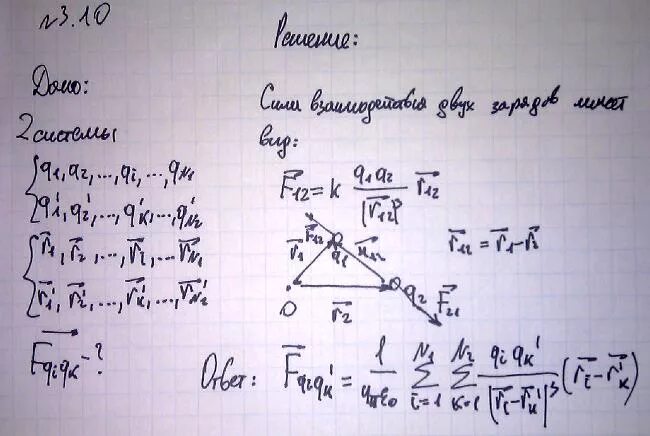 №3.10
Решение:
Дано:
2 системы
q₁, q₂, ..., qᵢ, ..., q_N₁
q₁', q₂', ..., q'ₖ, ..., q'_N₂
r⃗₁, r⃗₂, ..., r⃗ᵢ, ..., r⃗_N₁
r⃗₁', r⃗₂', ..., r⃗ₖ', ..., r⃗_N₂'
F⃗qᵢqₖ - ?
Сила взаимодействия двух зарядов имеет
вид:
F⃗₁₂ = k q₁q₂ / |r⃗₁₂|³ r⃗₁₂
F⃗₁₂
r⃗₁ q₁ r⃗₁₂ r⃗₁₂ = r⃗₁ - r⃗₂
O r⃗₂ q₂ F⃗₂₁
Ответ: F⃗qᵢqₖ' = 1/4πε₀ ∑ᵢ₌₁^N₁ ∑ₖ₌₁^N₂ qᵢqₖ' / |r⃗ᵢ - r⃗ₖ'|³ (r⃗ᵢ - r⃗'ₖ)